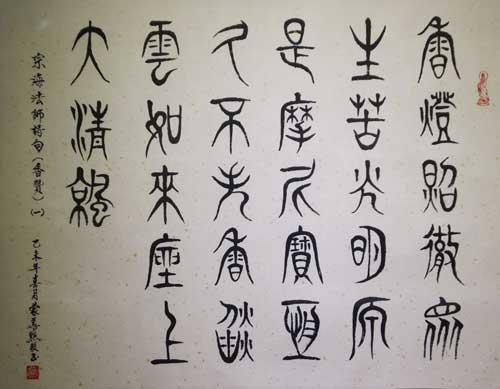 香燈照徹眾
生苦光明原
是摩尼寶恆
久不香燄
雲如來座上
大清䬙
宗海法師詩句（香贊）（一）
乙未年春月